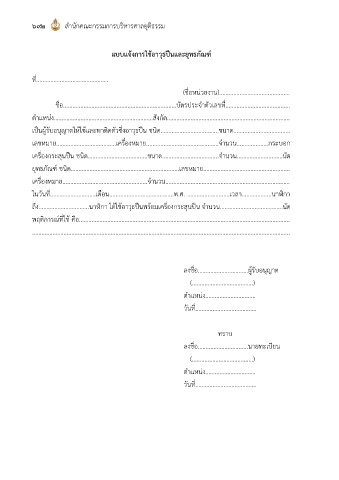 ๖๙๒ สำนักคณะกรรมการบริหารศาลยุติธรรม
แบบแจ้งการใช้อาวุธปืนและยุทธภัณฑ์
ที่..........................................
(ชื่อหน่วยงาน)..........................................
ชื่อ..........................................บัตรประจำตัวเลขที่..........................................
ตำแหน่ง..........................................สังกัด..........................................
เป็นผู้รับอนุญาตให้ใช้และพาติดตัวซึ่งอาวุธปืน ชนิด..............................ขนาด..............................
เลขหมาย..............................เครื่องหมาย..............................จำนวน................กระบอก
เครื่องกระสุนปืน ชนิด..............................ขนาด..............................จำนวน......................นัด
ยุทธภัณฑ์ ชนิด..........................................เลขหมาย..........................................
เครื่องหมาย..........................................จำนวน..........................................
ในวันที่......................เดือน..............................พ.ศ. ......................เวลา................นาฬิกา
ถึง......................นาฬิกา ได้ใช้อาวุธปืนพร้อมเครื่องกระสุนปืน จำนวน..............................นัด
พฤติการณ์ที่ใช้ คือ..........................................
..........................................
ลงชื่อ..........................ผู้รับอนุญาต
(................................)
ตำแหน่ง..........................
วันที่................................
ทราบ
ลงชื่อ..........................นายทะเบียน
(................................)
ตำแหน่ง..........................
วันที่................................